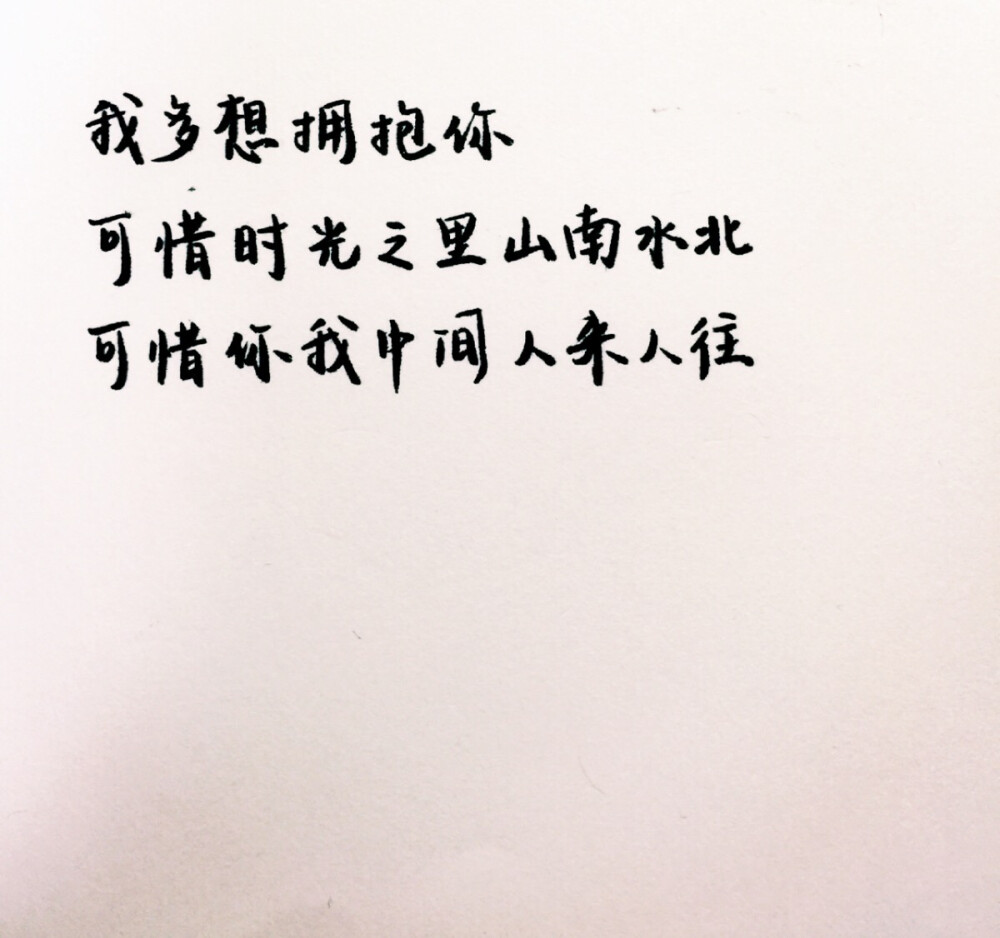 我多想拥抱你
可惜时光之里山南水北
可惜你我中间人来人往